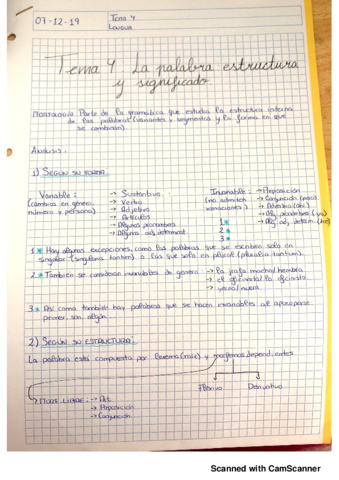 07-12-19
Tema 4
Lengua
Tema 4 La palabra estructura
y significado
MORFOLOGÍA: Parte de la gramatica que estudia la estructura interna
de las palabras (variantes y segmentos y la forma en que
se combinan)
ANÁLISIS:
1) SEGÚN SU FORMA.
Variable:
(cambios en género,
número y persona)
→ Sustantivos
→ Verbo
→ Adjetivo
→ Artículos
→ Algunos pronombres
→ Algunos adj. determinant
Invariable: → Preposición
(no admiten → Conjunción
variaciones) → Adverbio
→ Alg. pronombres
→ Alg. adj. determ.
1*
2*
3*
1* Hay algunas excepciones, como las palabras que se escriben solo en
singular (singularia tantum) o las que solo en plural (pluralia tantum).
2* También se consideran invariables de genero → la jirafa macho/hembra
→ el oficinista/la oficinista
→ yerno/nuera.
3* Así como también hay palabras que se hacen invariables al apocoparse.
primer, san, algún.
2) SEGÚN SU ESTRUCTURA:
La palabra está compuesta por lexema (raíz) y morfemas dependientes.
Flexivo
Derivativo
→ MORF. LIBRE: → Art.
→ Preposición
→ Conjunción
Scanned with CamScanner